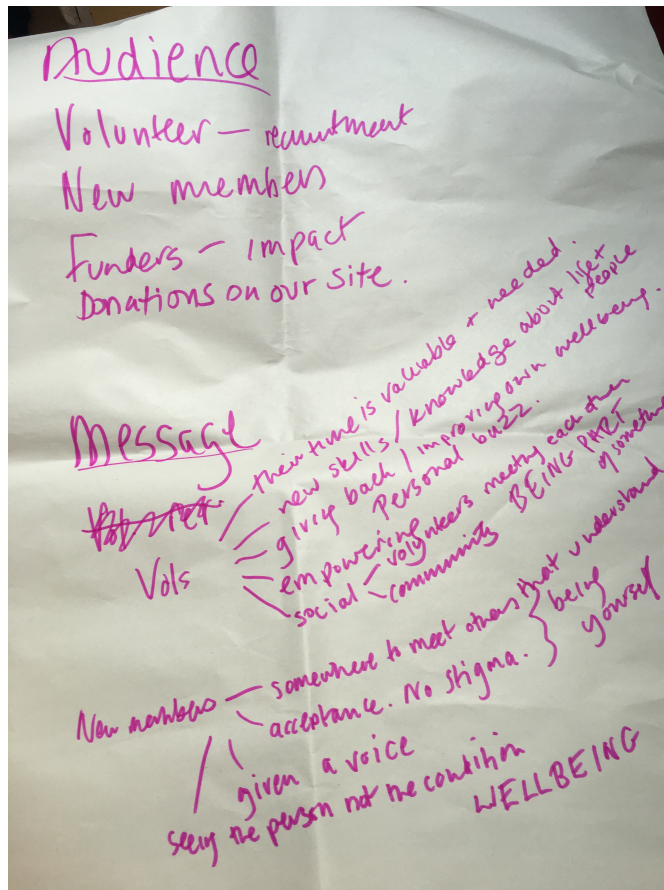 Audience
Volunteer – recruitment
New members
Funders – impact
Donations on our site.
Message
Vols
their time is valuable + needed.
new skills / knowledge about life + people
giving back / improving own wellbeing.
Personal buzz.
empowering
social
volunteers meeting each other
community BEING PART
of something
New members
somewhere to meet others that understand
acceptance. No stigma.
being
yourself
given a voice
seeing the person not the condition
WELLBEING